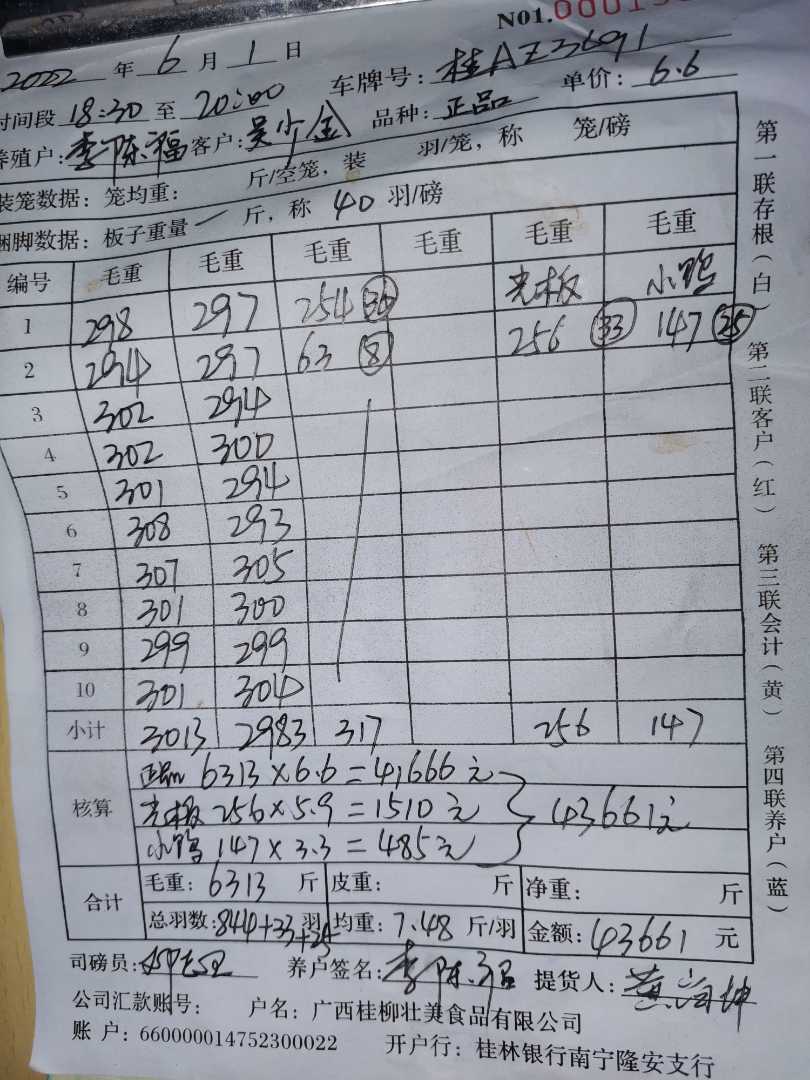 N01.00019
2022 年 6 月 1 日
车牌号: 桂AZ3691
时间段 18:30 至 20:00 品种: 正品 单价: 6.6
养殖户: 李陈福 客户: 吴少金
装笼数据: 笼均重: 斤/空笼, 装 羽/笼, 称 笼/磅
捆脚数据: 板子重量 一 斤, 称 40 羽/磅
编号 毛重 毛重 毛重 毛重 毛重 毛重
光板 小鸭
1 298 297 254 36 256 33 147 25
2 294 297 63 8
3 302 294
4 302 300
5 301 294
6 308 293
7 307 305
8 301 300
9 299 299
10 301 304
小计 3013 2983 317 256 147
核算
正品 6313×6.6=41666元
光板 256×5.9=1510元
小鸭 147×3.3=485元
43661元
合计 毛重: 6313 斤 皮重: 斤 净重: 斤
总羽数: 844+33+25 羽 均重: 7.48 斤/羽 金额: 43661 元
司磅员: 养户签名: 李陈福 提货人:
公司汇款账号: 户名: 广西桂柳壮美食品有限公司
账户: 660000014752300022 开户行: 桂林银行南宁隆安支行
第一联存根(白) 第二联客户(红) 第三联会计(黄) 第四联养户(蓝)